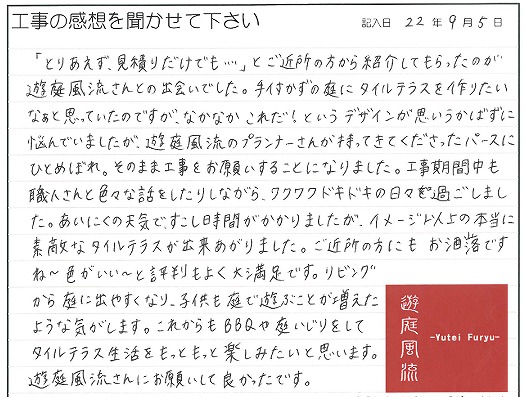 工事の感想を聞かせて下さい
記入日 22年9月5日
「とりあえず、見積りだけでも…」とご近所の方から紹介してもらったのが
遊庭風流さんとの出会いでした。手付かずの庭にタイルテラスを作りたい
なぁと思っていたのですが、なかなかこれだ!というデザインが思いうかばずに
悩んでいましたが、遊庭風流のプランナーさんが持ってきてくださったパースに
ひとめぼれ。そのまま工事をお願いすることになりました。工事期間中も
職人さんと色々な話をしたりしながら、ワクワクドキドキの日々を過ごしまし
た。あいにくの天気ですこし時間がかかりましたが、イメージ以上の本当に
素敵なタイルテラスが出来あがりました。ご近所の方にもお洒落です
ね〜色がいい〜と評判もよく大満足です。リビング
から庭に出やすくなり、子供も庭で遊ぶことが増えた
ような気がします。これからもBBQや庭いじりをして
タイルテラス生活をもっともっと楽しみたいと思います。
遊庭風流さんにお願いして良かったです。
遊庭風流
-Yutei Furyu-